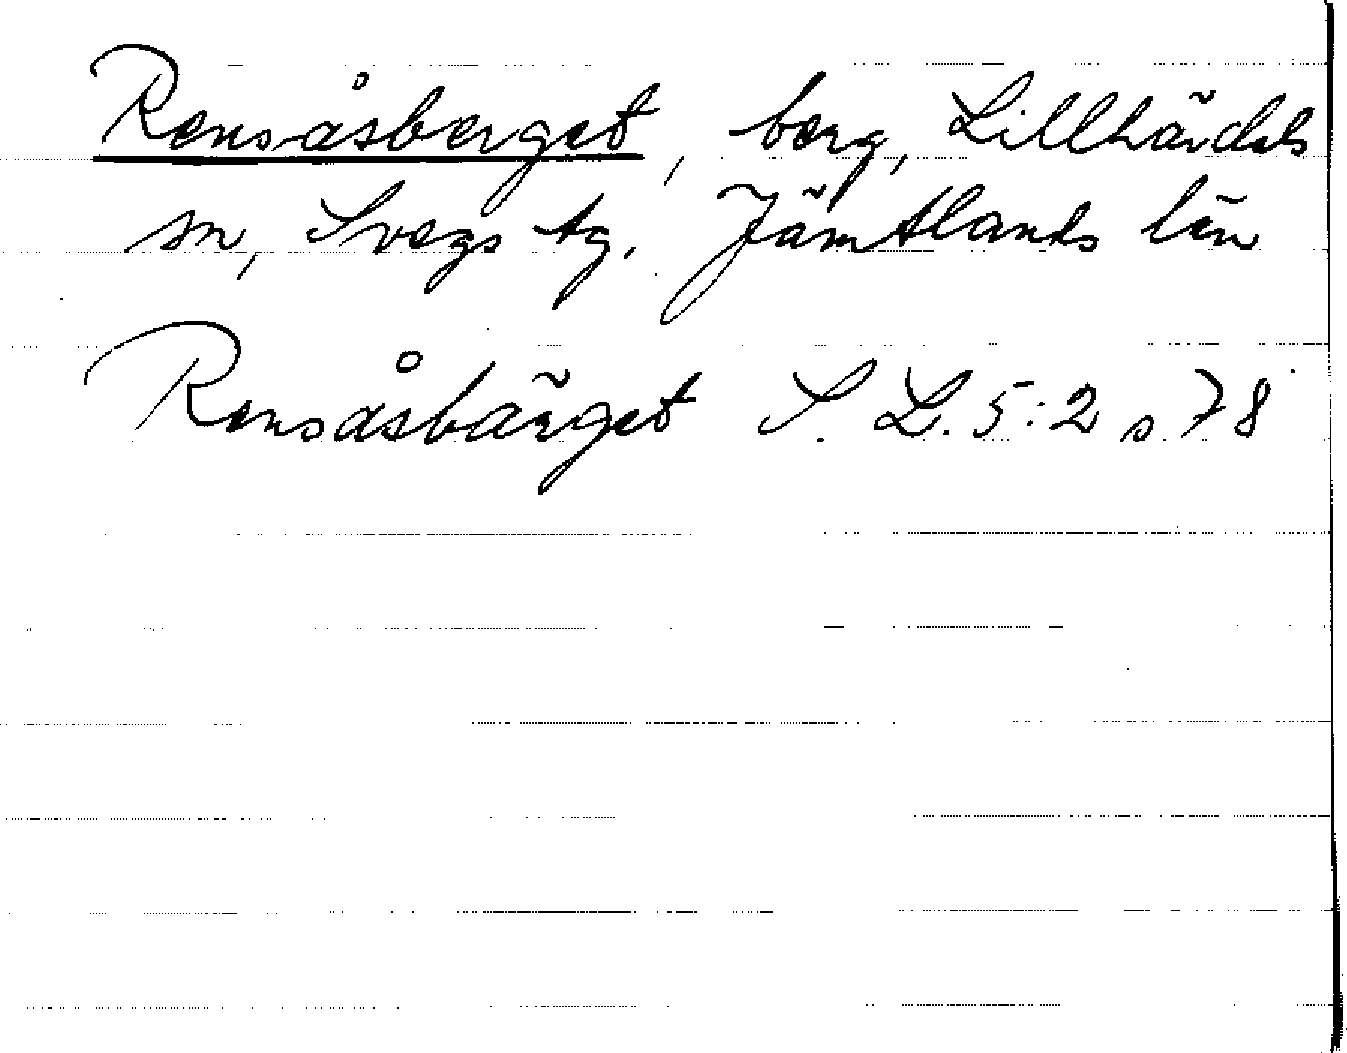 Rensåsberget, berg, Lillhärdals
sn, Svegs tg, Jämtlands län
Rensåsbärget S. L. 5:2 s 78